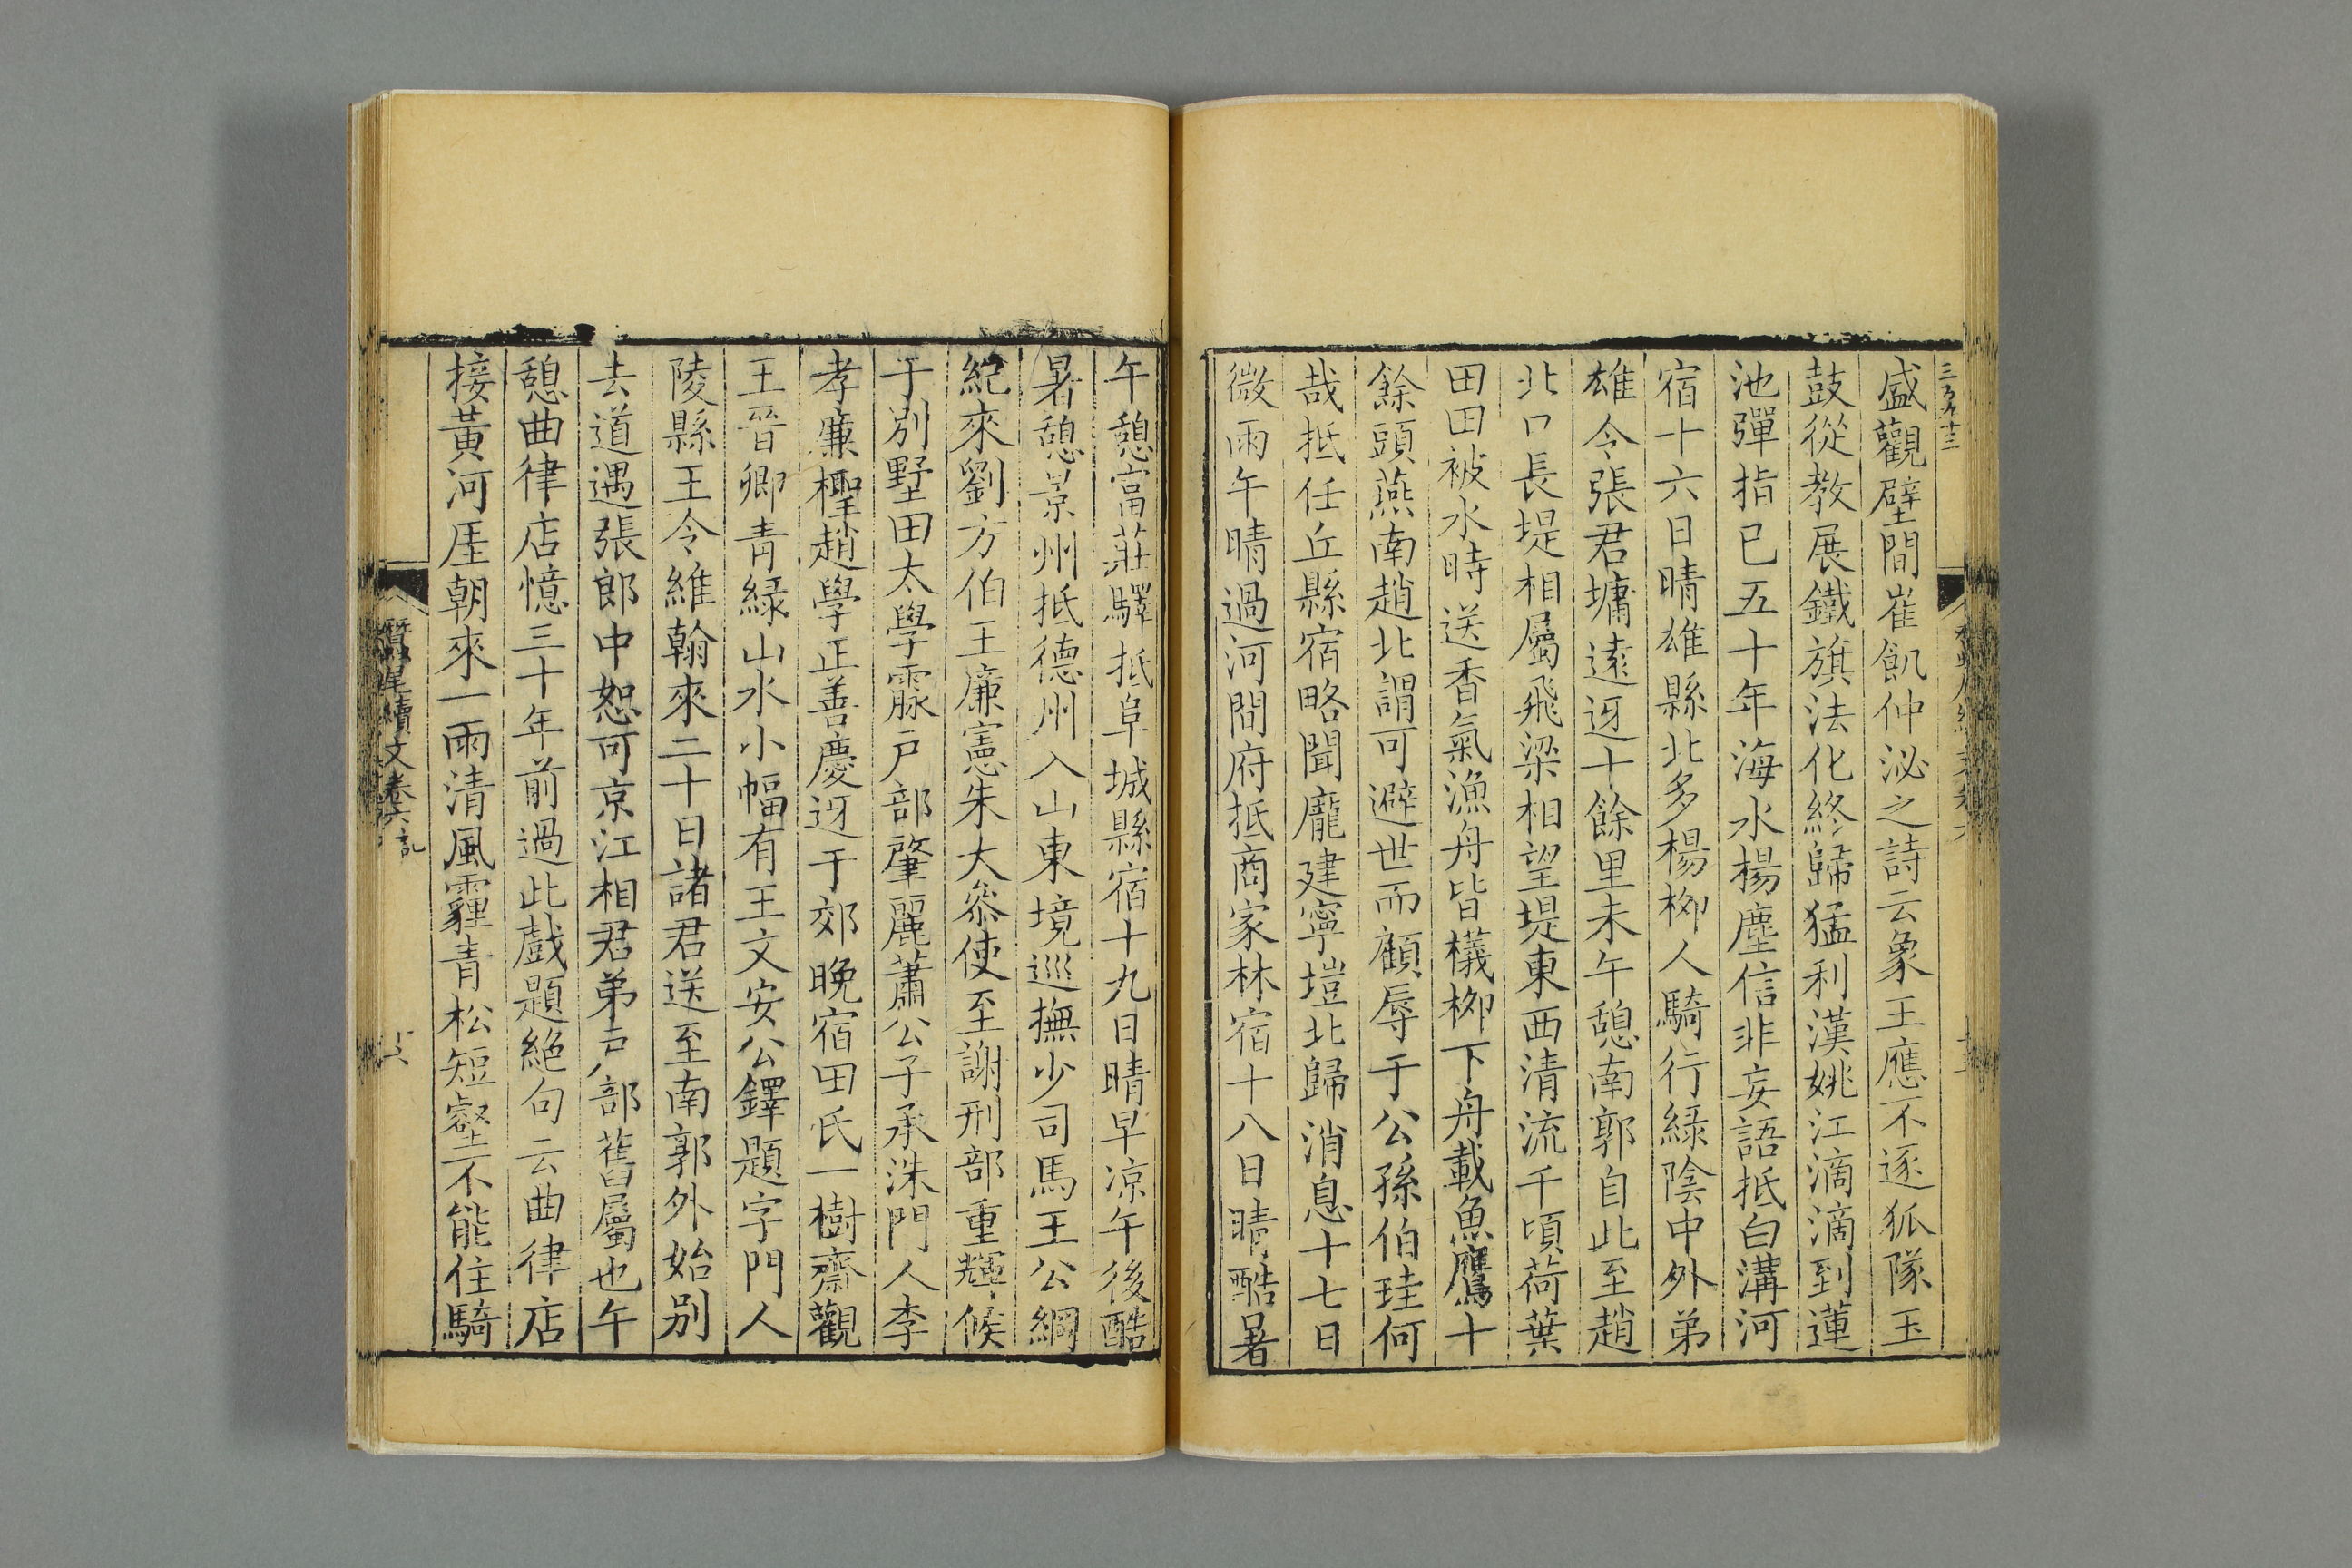 盛觀壁間崔飢仲泌之詩云象王應不逐狐隊玉
鼓從教展鐵旗法化終歸猛利漢姚江滴滴到蓮
池彈指已五十年海水楊塵信非妄語抵白溝河
宿十六日晴雄縣北多楊栁人騎行綠陰中外弟
雄令張君墉遠迓十餘里未午憩南郭自此至趙
北口長堤相屬飛梁相望堤東西清流千頃荷葉
田田被水時送香氣漁舟皆檥栁下舟載魚鷹十
餘頭燕南趙北謂可避世而顧辱于公孫伯珪何
哉抵任丘縣宿略聞龐建寧塏北歸消息十七日
微雨午晴過河間府抵商家林宿十八日晴酷暑
午憩富莊驛抵阜城縣宿十九日晴早凉午後酷
暑憩景州抵德州入山東境巡撫少司馬王公綱
紀來劉方伯王廉憲朱大叅使至謝刑部重輝候
于别墅田太學霡戸部肇麗蕭公子承洙門人李
孝廉檉趙學正善慶迓于郊晩宿田氏一樹齋觀
王晉卿青綠山水小幅有王文安公鐸題字門人
陵縣王令維翰來二十日諸君送至南郭外始别
去道遇張郎中恕可京江相君弟戸部舊屬也午
憩曲律店憶三十年前過此戲題絶句云曲律店
接黃河厓朝來一雨清風霾青松短壑不能住騎
續文卷六 記